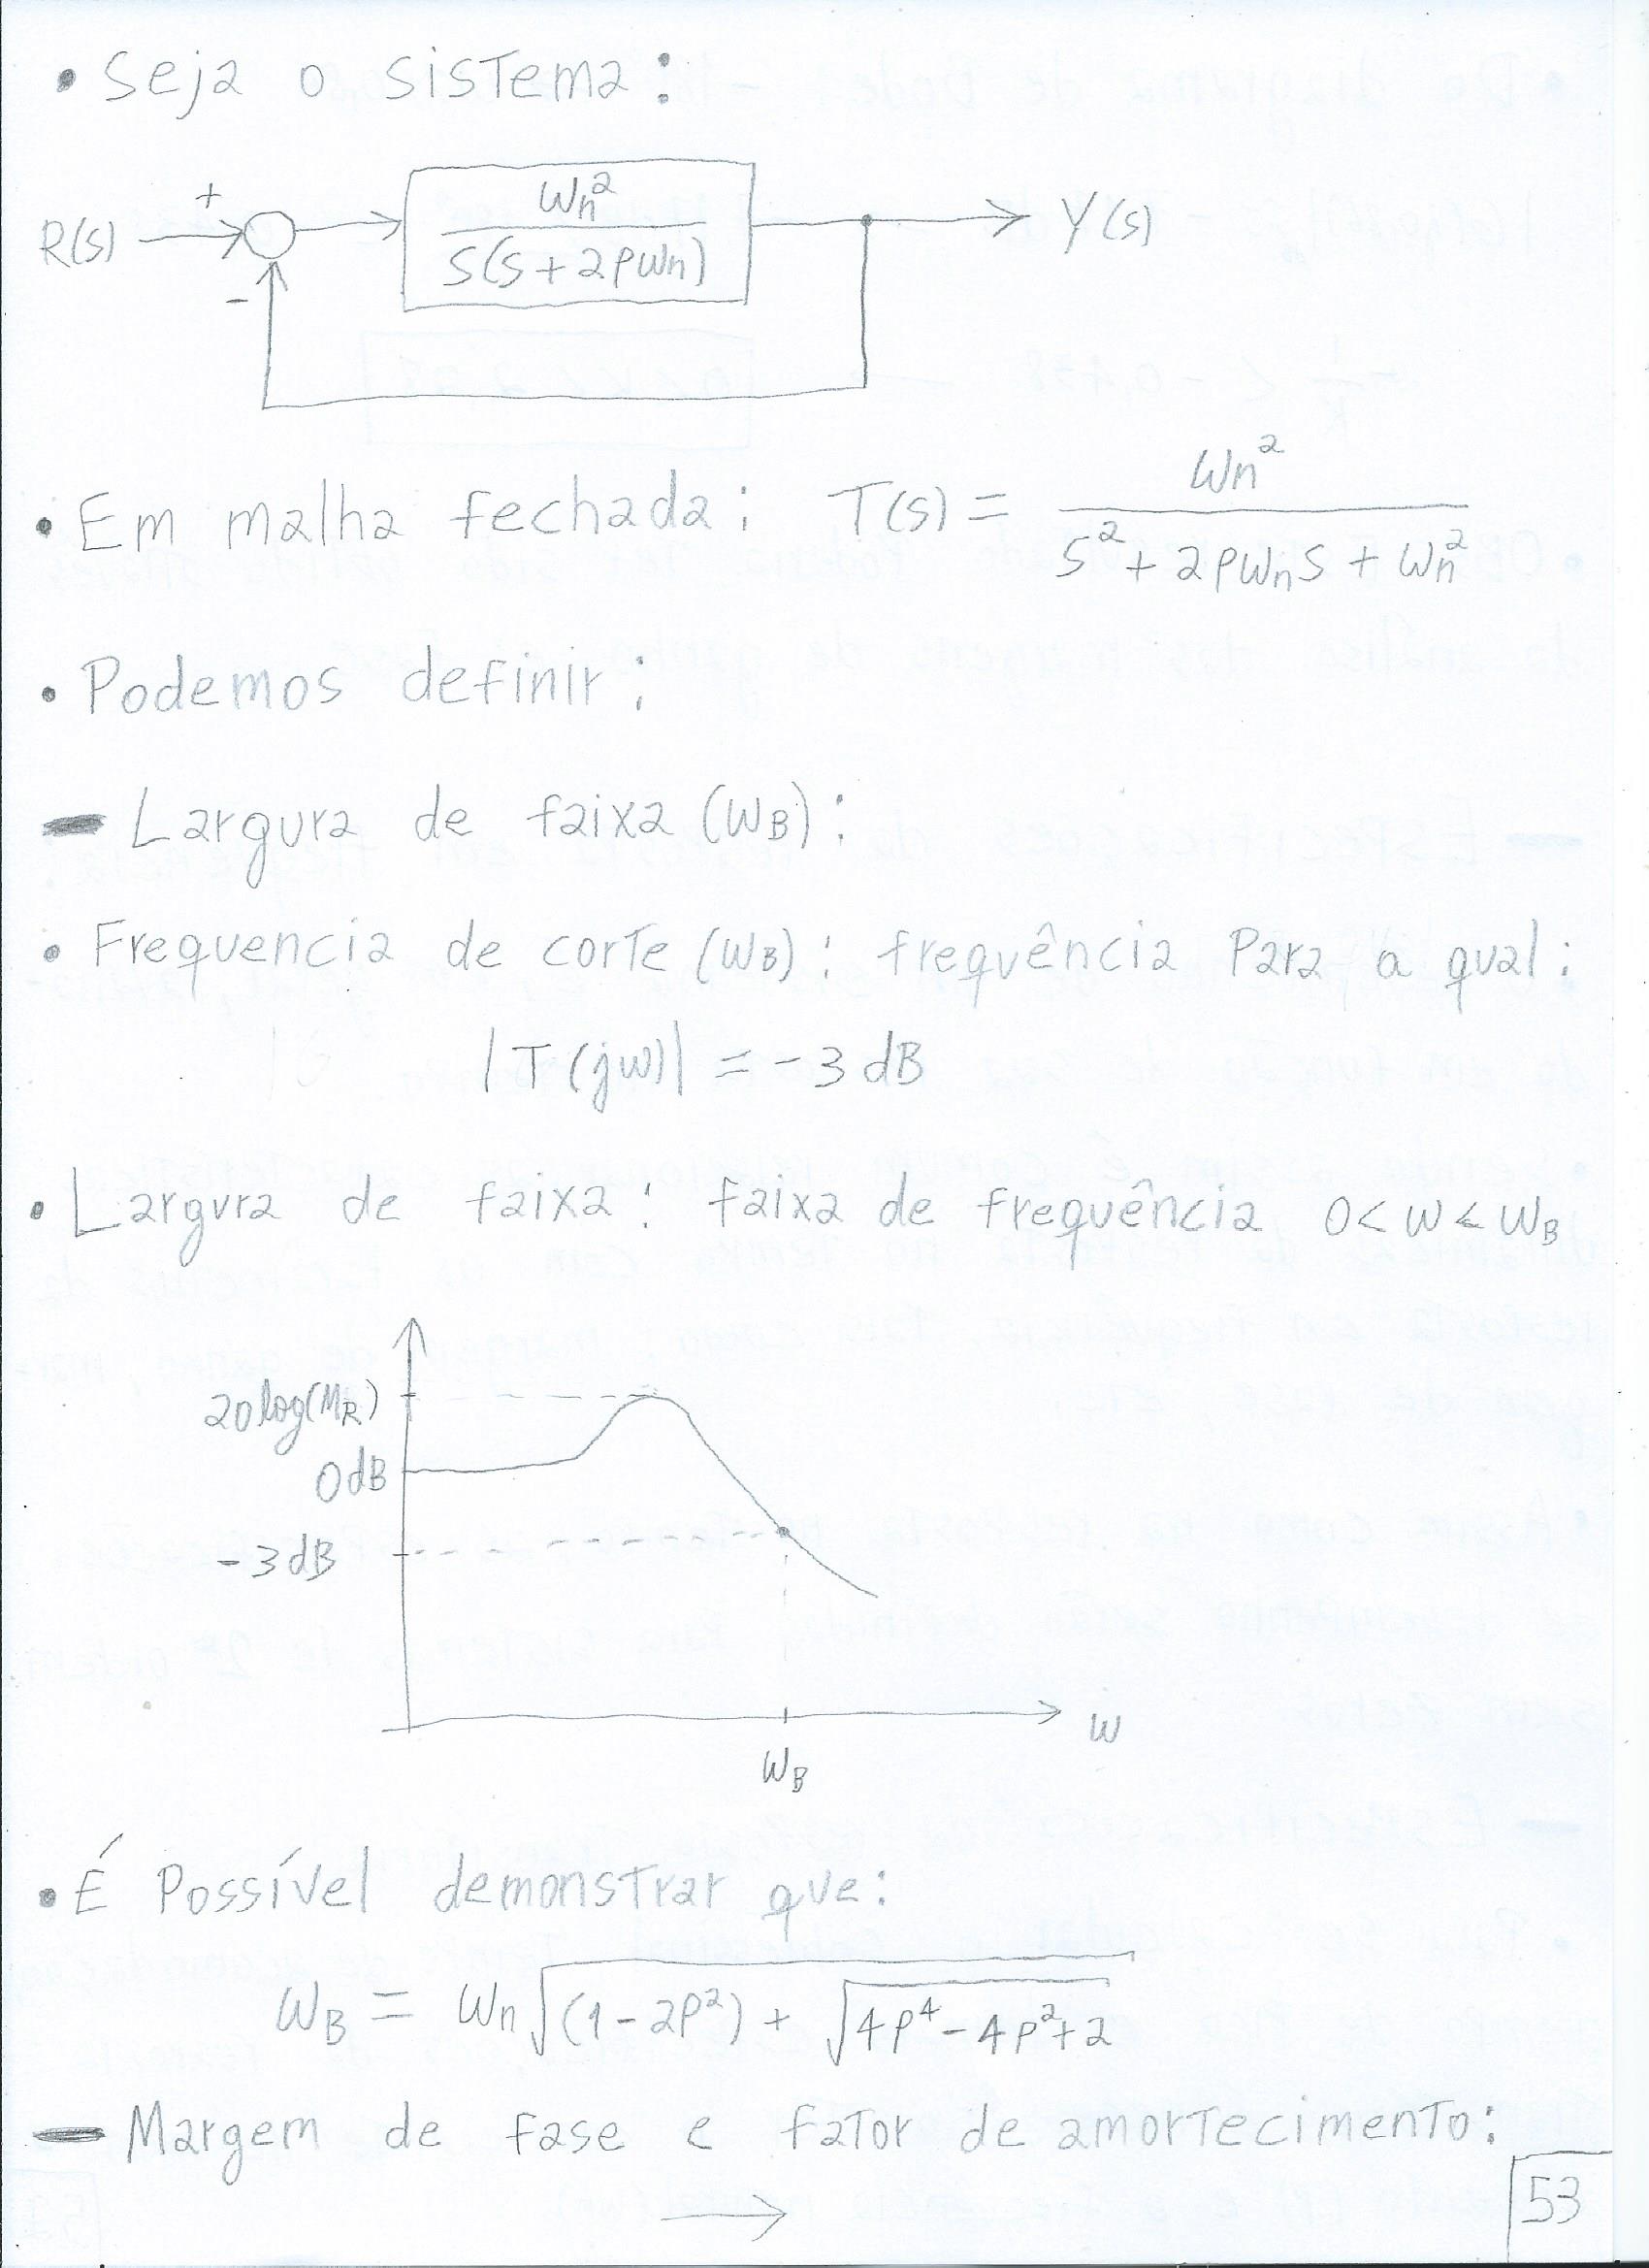 • Seja o sistema:
R(s) + - Wn² / S(S + 2ρWn) Y(s)
• Em malha fechada: T(s) = Wn² / S² + 2ρWnS + Wn²
• Podemos definir:
- Largura de faixa (WB):
• Frequencia de corte (WB): frequência Para a qual:
|T(jw)| = -3 dB
• Largura de faixa: faixa de frequência 0 < w < WB
20log(MR)
0dB
-3dB
w
WB
• É Possível demonstrar que:
WB = Wn√((1-2ρ²) + √(4ρ⁴ - 4ρ² + 2))
- Margem de fase e fator de amortecimento:
→
53